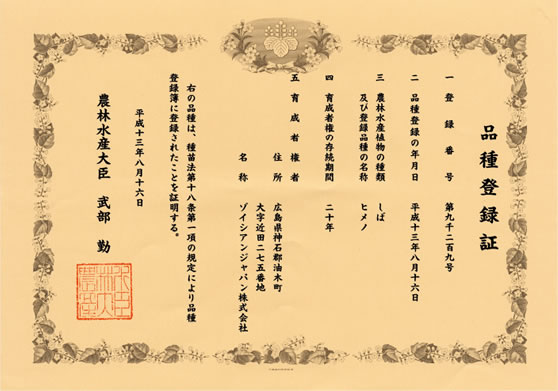 品種登録証
一 登録番号 第九千二百九号
二 品種登録の年月日 平成十三年八月十六日
三 農林水産植物の種類 しば
及び登録品種の名称 ヒメノ
四 育成者権の存続期間 二十年
五 育成者権者
住所 広島県神石郡油木町
大字近田二七五番地
名称 ゾイシアンジャパン株式会社
右の品種は、種苗法第十八条第一項の規定により品種
登録簿に登録されたことを証明する。
平成十三年八月十六日
農林水産大臣 武部 勤